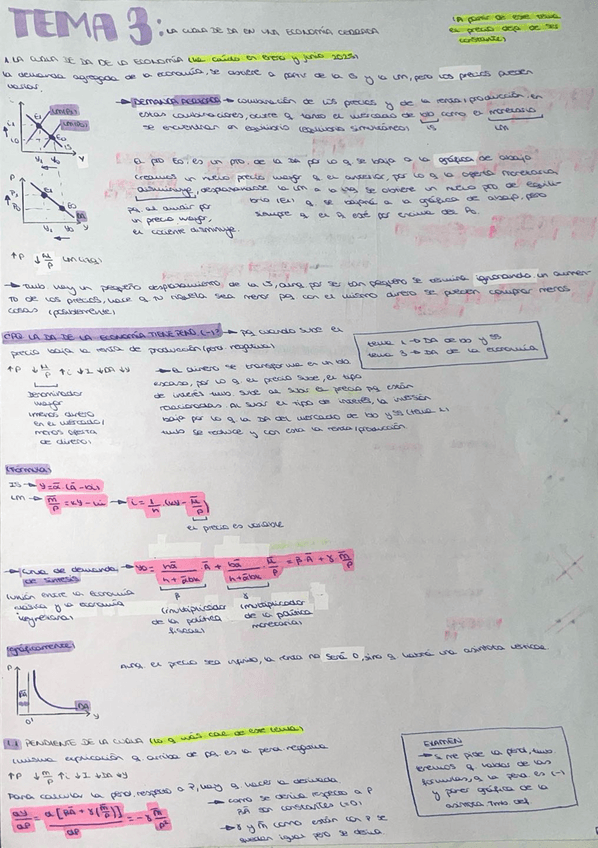 TEMA 3: LA CURVA DE DA EN UNA ECONOMÍA CERRADA
(A partir de este tema el precio deja de ser constante)
1. LA CURVA DE DA DE LA ECONOMÍA (ha caído en enero y junio 2025)
la demanda agregada de la economía, se obtiene a partir de la IS y la LM, pero los precios pueden
variar.
→ DEMANDA AGREGADA → combinación de los precios y de la renta/producción, en
estas combinaciones, ocurre q tanto el mercado de bb como el monetario
se encuentran en equilibrio (equilibrio simultáneo) IS LM
El pto E0, es un pto. de la DA por lo q se baja a la gráfica de abajo
creamos un nuevo precio mayor q el anterior, por lo q la oferta monetaria,
disminuye, desplazándose la LM a la izq. se obtiene un nuevo pto de equili-
brio (E1) q se bajará a la gráfica de abajo, pero
siempre q el P1 esté por encima del P0.
pq al dividir por
un precio mayor,
el cociente disminuye.
↑P ↓ M/P LM (izq)
P
DA
Y
→ Tmb hay un pequeño desplazamiento de la IS, aunq por ser tan pequeño se termina ignorando. un aumen-
to de los precios, hace q tu riqueza sea menor pq con el mismo dinero se pueden comprar menos
cosas (posiblemente)
¿PQ LA DA DE LA ECONOMÍA TIENE PEND (-)? → pq cuando sube el
precio baja la renta de producción (pend. negativa)
tema 2 → DA de bb y ss
tema 3 → DA de la economía
↑P ↓ M/P ↑i ↓I ↓DA ↓Y
Denominador
mayor
(menos dinero
en el mercado/
menos oferta
de dinero)
→ El dinero se transforma en un bien
escaso, por lo q el precio sube, el tipo
de interés tmb. sube al subir el precio pq están
relacionadas. Al subir el tipo de interés, la inversión
baja por lo q la DA del mercado de bb y ss (tema 2)
tmb se reduce y con esta la renta/producción
(Fórmula)
IS → Y = ᾱ · (Ā - bi)
LM → M̄/P = kY - hi → i = 1/h · (kY - M̄/P)
el precio es variable
→ Curva de demanda
de síntesis
→ Y0 = hᾱ/(h + ᾱbk) · Ā + bᾱ/(h + ᾱbk) · M̄/P = β · Ā + γ M̄/P
(unión entre la economía
clásica y la economía
keynesiana)
β
(multiplicador
de la política
fiscal)
γ
(multiplicador
de la política
monetaria)
(gráficamente)
Aunq el precio sea infinito, la renta no será 0, sino q habrá una asíntota vertical
P
βĀ
DA
0'
Y
1.1 PENDIENTE DE LA CURVA (lo q más cae de este tema)
(misma explicación q arriba de pq es la pend negativa
↑P ↓ M/P ↑i ↓I ↓DA ↓Y
Para calcular la pend, respecto a P, hay q hacer la derivada
dY/dP = d[βĀ + γ(M̄/P)]/dP = -γ M̄/P²
→ como se deriva respecto a P
βĀ son constantes (=0)
→ γ y M̄ como están con P se
quedan igual pero se deriva
EXAMEN
→ Si me pide la pend, tmb.